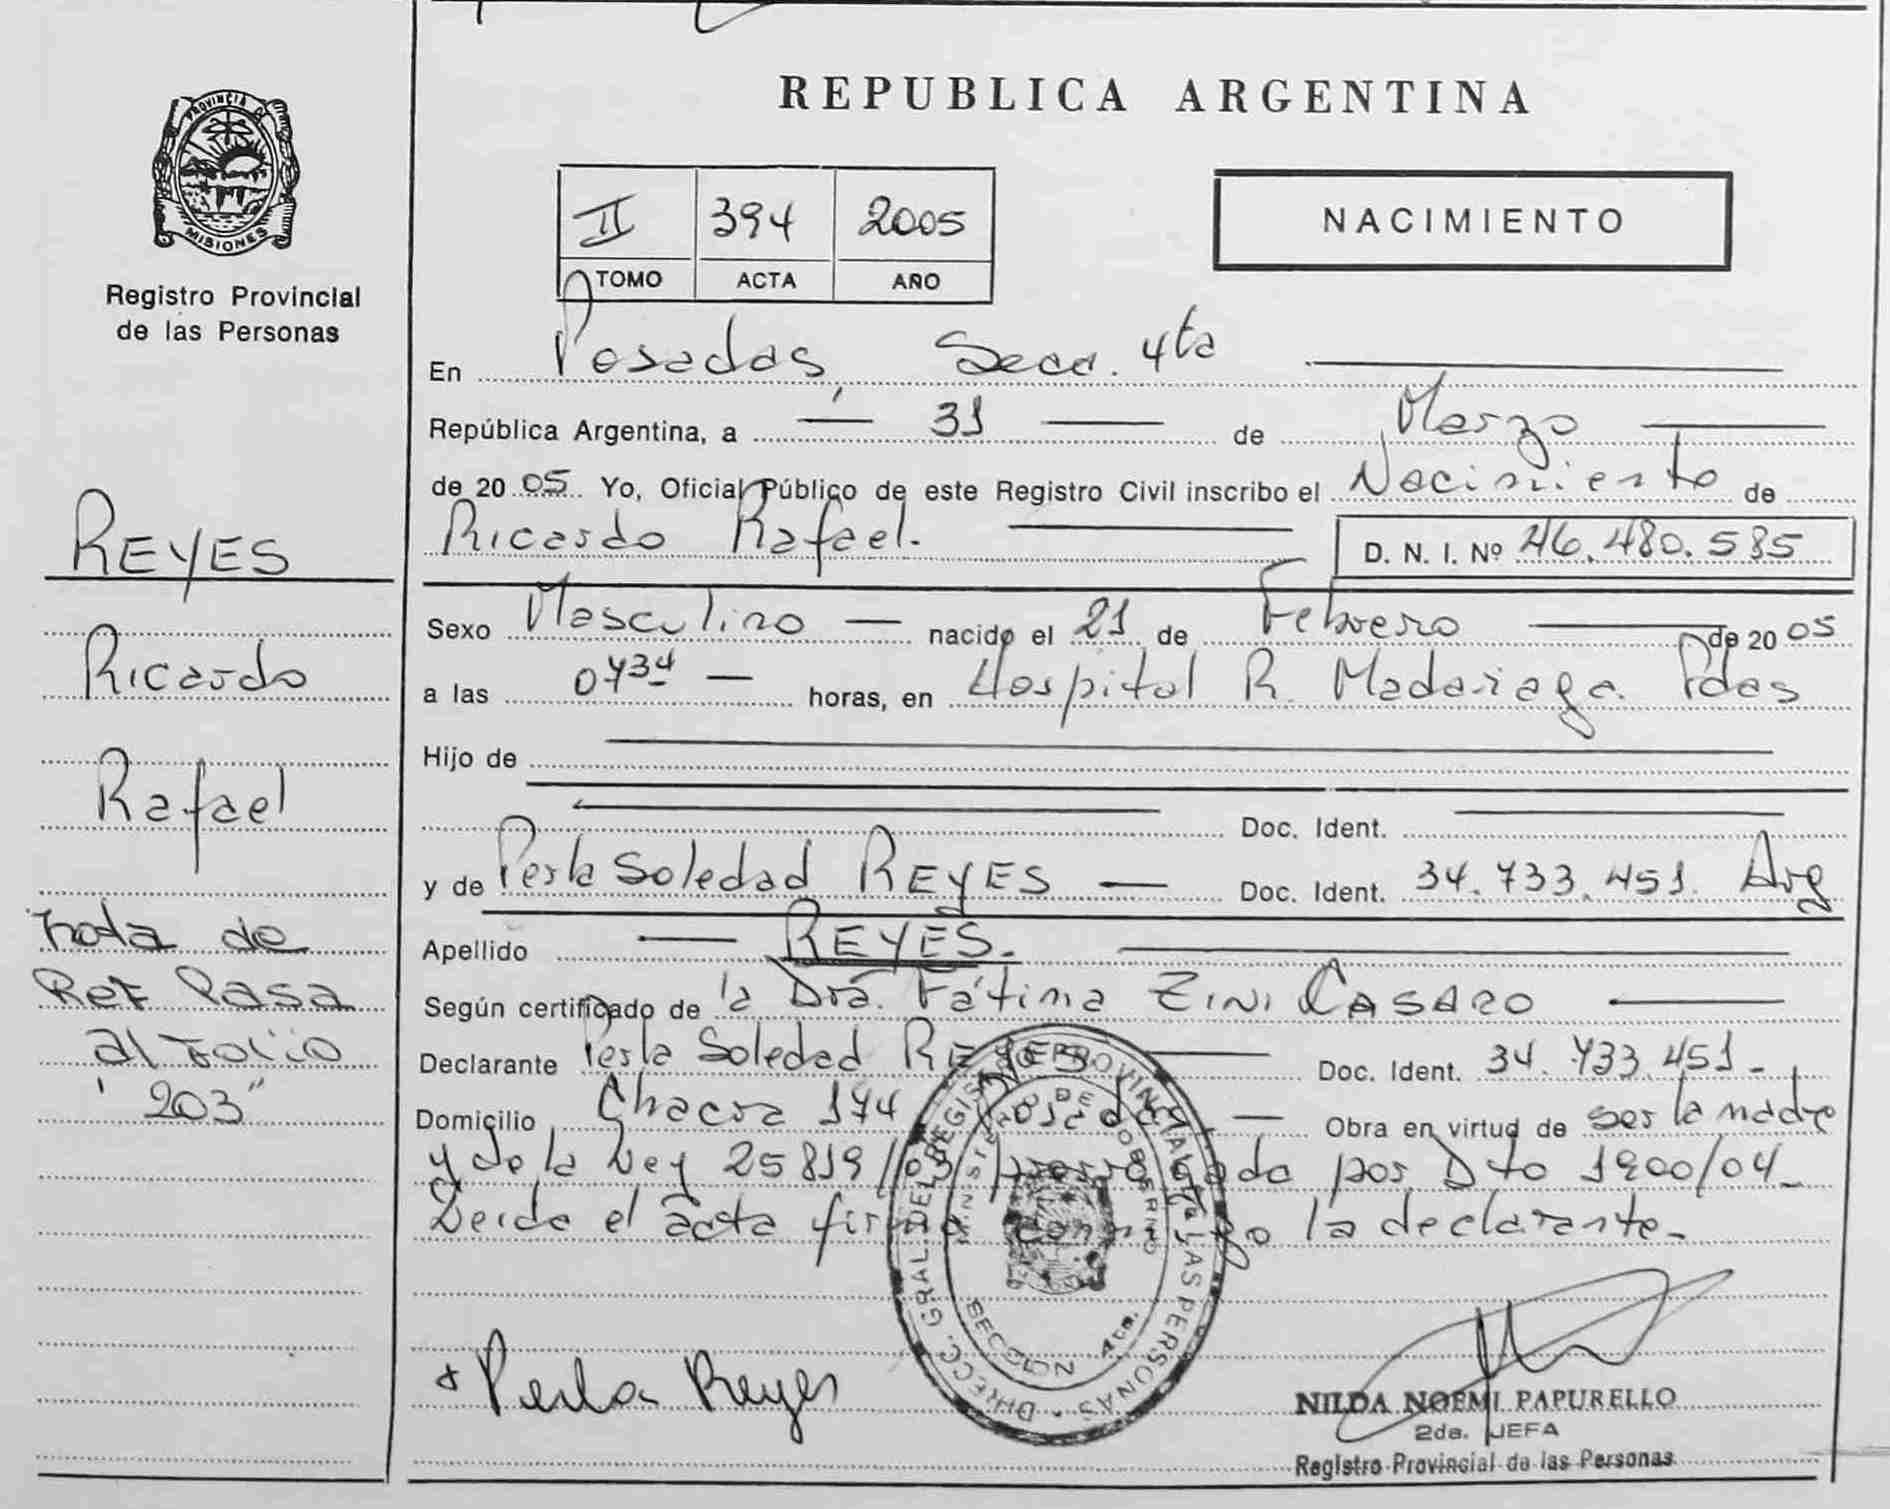 REPUBLICA ARGENTINA
PROVINCIA DE
MISIONES
Registro Provincial
de las Personas
II 394 2005
TOMO ACTA AÑO
NACIMIENTO
En Posadas, Secc. 4ta
República Argentina, a 31 de Marzo
de 2005 Yo, Oficial Público de este Registro Civil inscribo el Nacimiento de
Ricardo Rafael. D. N. I. Nº 46.480.585
Sexo Masculino nacido el 21 de Febrero de 2005
a las 0734 horas, en Hospital R. Madariaga. Pdas
Hijo de
Doc. Ident.
y de Perla Soledad REYES Doc. Ident. 34.733.451. Arg
Apellido REYES.
Según certificado de la Dra. Fátima ZINI CASARO
Declarante Perla Soledad REYES Doc. Ident. 34.733.451.
Domicilio Chacra 174 Posadas Obra en virtud de ser la madre
y de la Ley 25819/03 prorrogada por Dto 1900/04
Leida el acta firma conmigo la declarante.
REYES
Ricardo
Rafael
Nota de
Ref Pasa
al Folio
"203"
DIRECC. GRAL. DEL REGISTRO PROVINCIAL DE LAS PERSONAS
MINISTERIO DE GOBIERNO
SECCION 4ta.
Perla Reyes
NILDA NOEMI PAPURELLO
2da. JEFA
Registro Provincial de las Personas